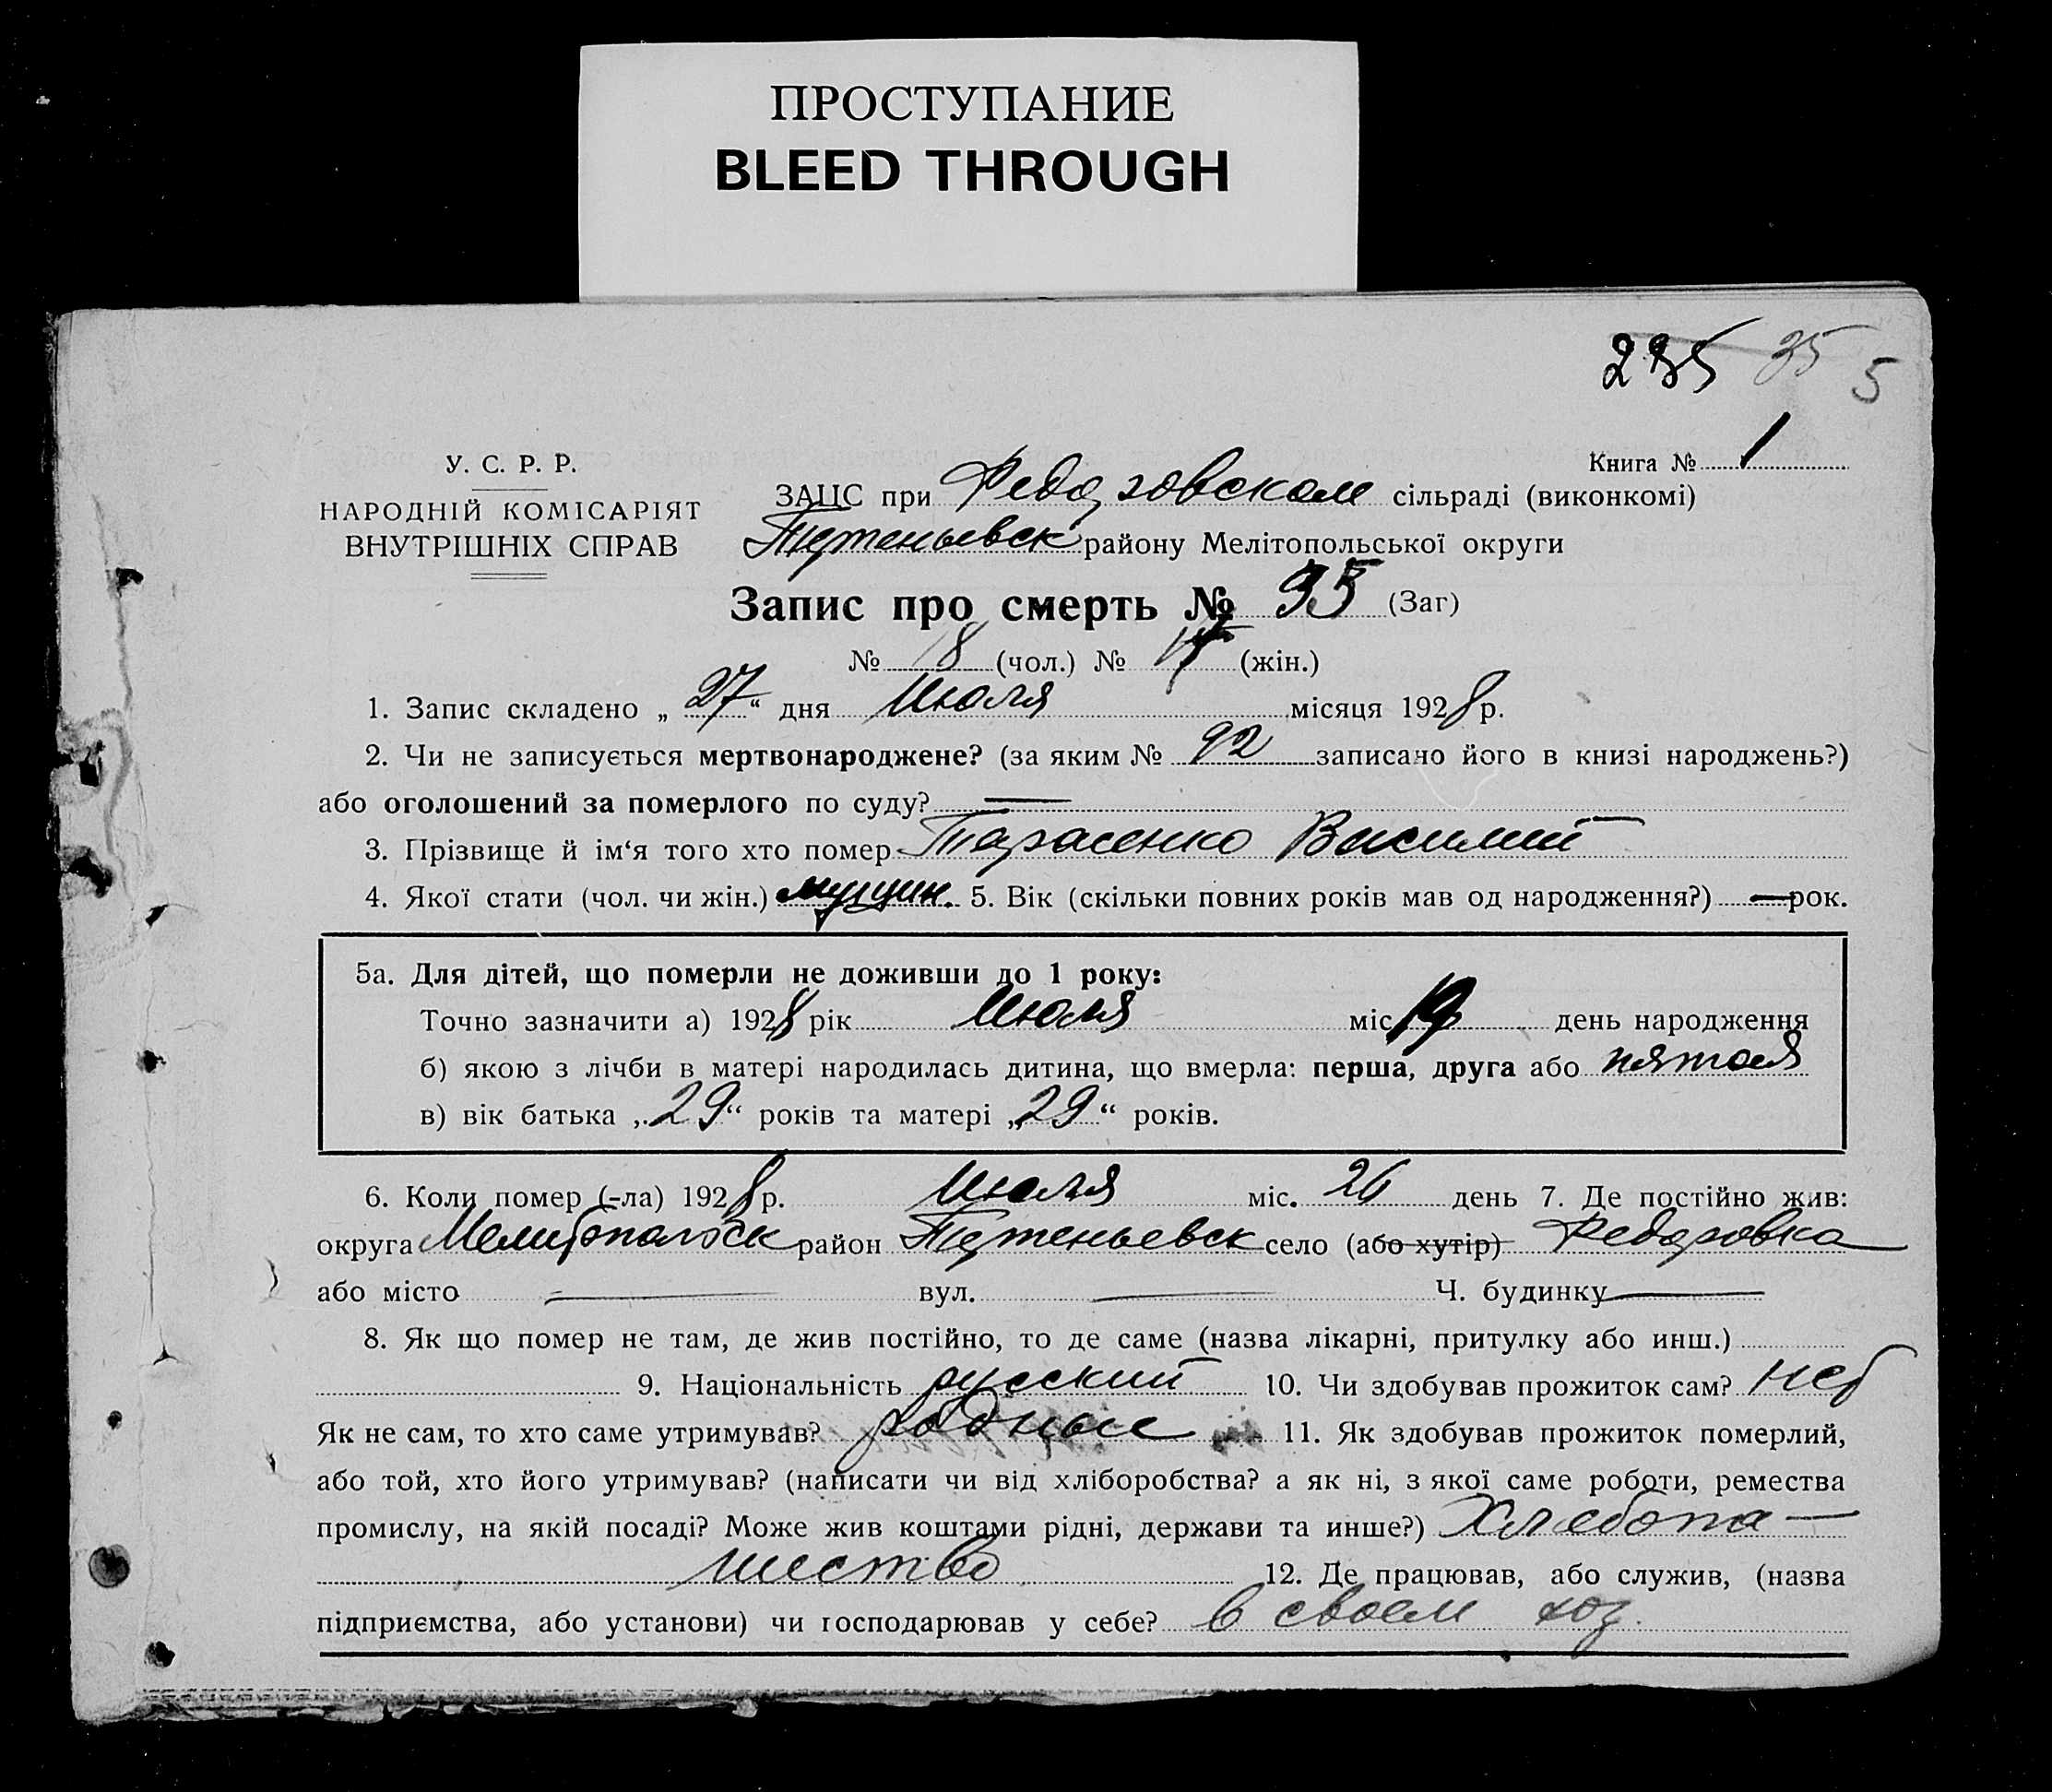 ПРОСТУПАНИЕ
BLEED THROUGH
235 35 5
Книга № 1
У. С. Р. Р.
НАРОДНІЙ КОМІСАРІЯТ
ВНУТРІШНІХ СПРАВ
ЗАЦС при Федоровском сільраді (виконкомі)
Тутеньевск району Мелітопольської округи
Запис про смерть № 35 (Заг)
№ 18 (чол.) № 17 (жін.)
1. Запис складено „27“ дня Июля місяця 1928 р.
2. Чи не записується мертвонароджене? (за яким № 92 записано його в книзі народжень?)
або оголошений за померлого по суду? —
3. Прізвище й ім‘я того хто помер Тарасенко Василий
4. Якої стати (чол. чи жін.) мущин. 5. Вік (скільки повних років мав од народження?) — рок.
5а. Для дітей, що померли не доживши до 1 року:
Точно зазначити а) 1928 рік Июля міс 19 день народження
б) якою з лічби в матері народилась дитина, що вмерла: перша, друга або пятая
в) вік батька „29“ років та матері „29“ років.
6. Коли помер (-ла) 1928 р. Июля міс. 26 день 7. Де постійно жив:
округа Мелитопольск район Тутеньевск село (або хутір) Федоровка
або місто — вул. — Ч. будинку —
8. Як що помер не там, де жив постійно, то де саме (назва лікарні, притулку або инш.)
9. Національність русский 10. Чи здобував прожиток сам? нет
Як не сам, то хто саме утримував? родные 11. Як здобував прожиток померлий,
або той, хто його утримував? (написати чи від хліборобства? а як ні, з якої саме роботи, ремества
промислу, на якій посаді? Може жив коштами рідні, держави та инше?) Хлебопа—
шество 12. Де працював, або служив, (назва
підприємства, або установи) чи господарював у себе? в своем хоз.